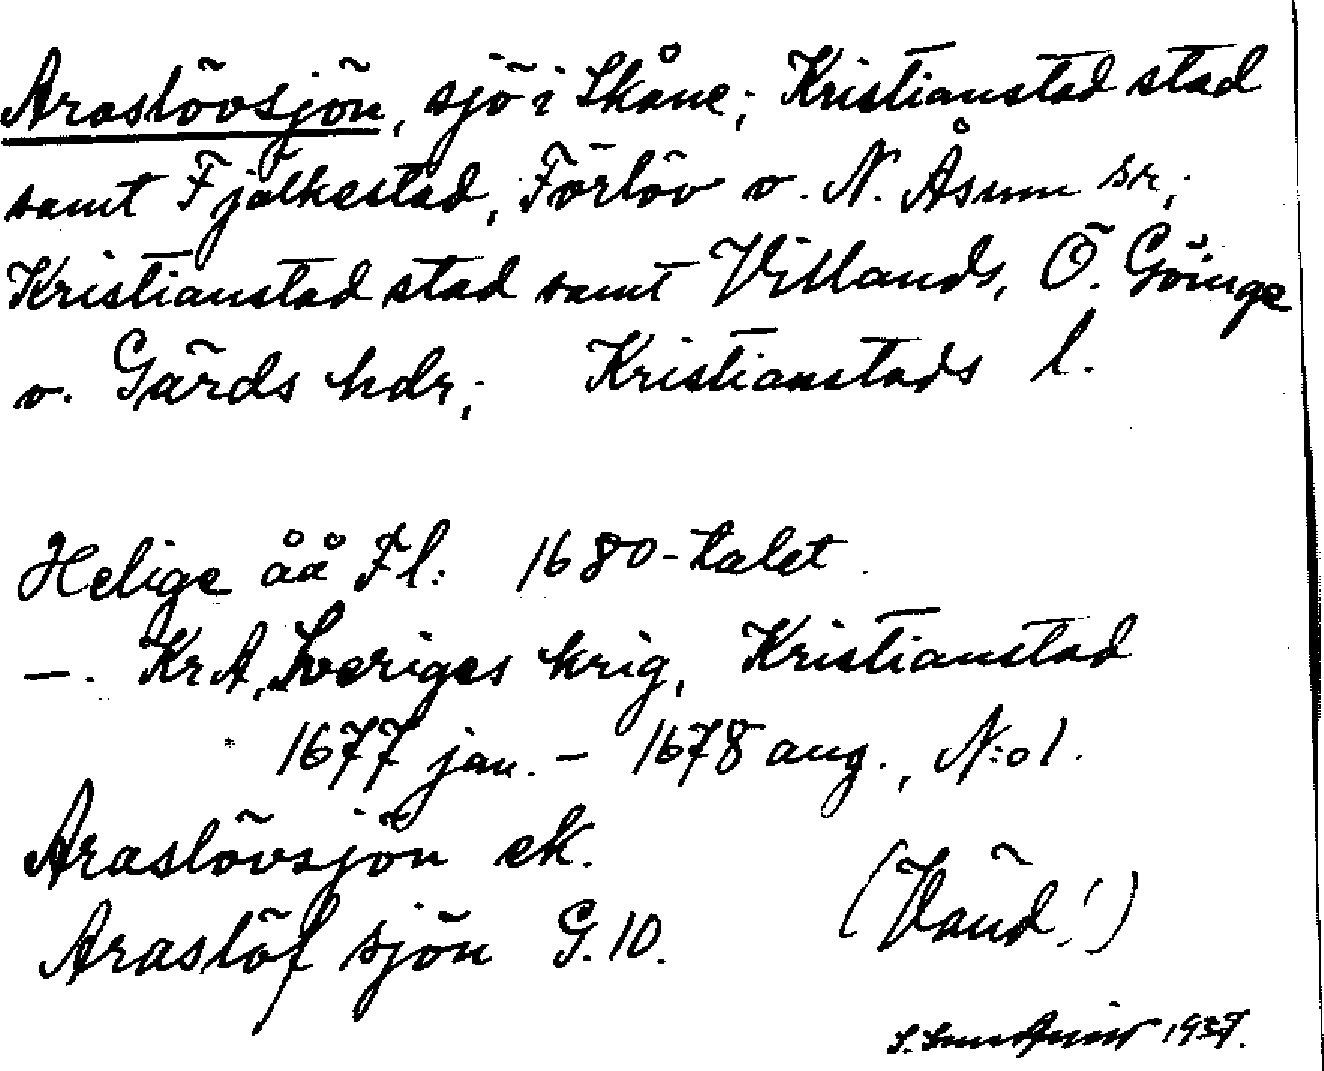 Araslövsjön, sjö i Skåne; Kristianstad stad
samt Fjälkestad, Färlöv o. N. Åsum snr;
Kristianstad stad samt Villands, Ö. Göinge
o. Gärds hdr; Kristianstads l.
Helige åå Fl: 1680-talet.
—. KrA, Sveriges krig, Kristianstad
1677 jan. – 1678 aug., N:o 1.
Araslövsjön ek.
Araslöf sjön G.10.
(Vänd!)
1937.